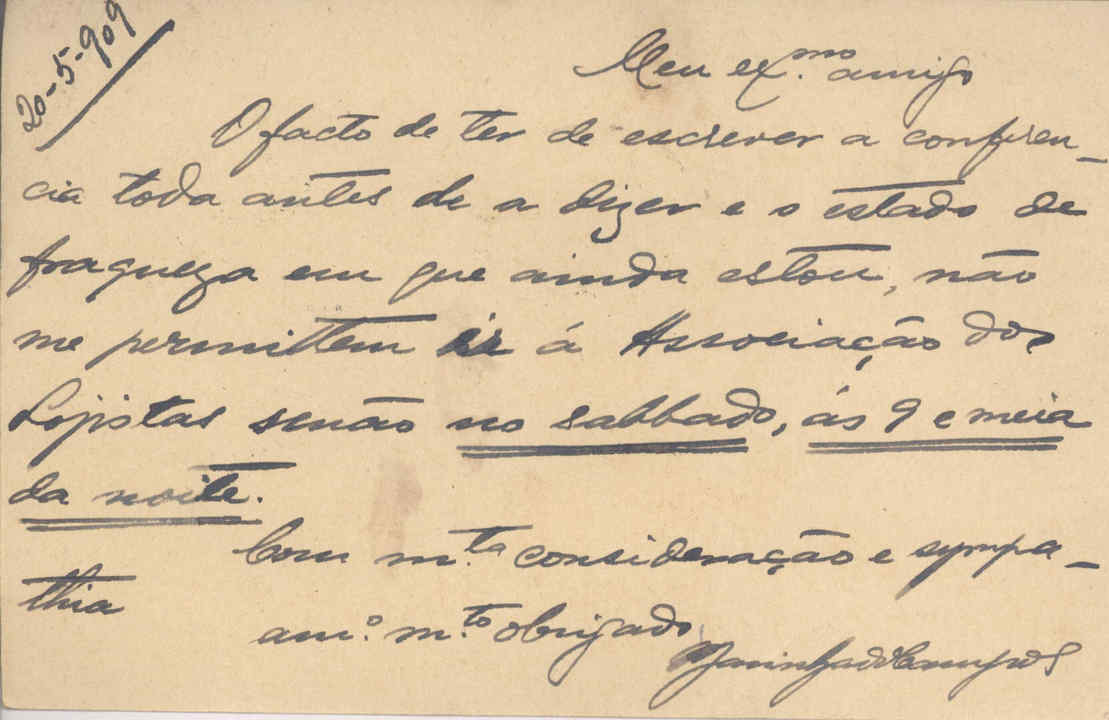 20-5-909
Meu ex.mo amigo
O facto de ter de escrever a conferen-
cia toda antes de a dizer e o estado de
fraqueza em que ainda estou, não
me permittem ir á Associação dos
Lojistas senão no sabbado, ás 9 e meia
da noite.
Com m.ta consideração e sympa-
thia
am.o m.to obrigado
Marinha de Campos